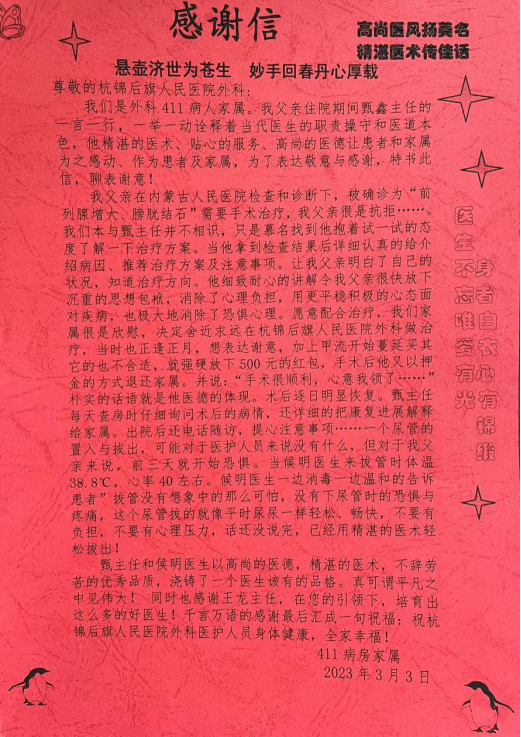 感谢信
高尚医风扬美名
精湛医术传佳话
悬壶济世为苍生 妙手回春丹心厚载
尊敬的杭锦后旗人民医院外科:
我们是外科411病人家属。我父亲住院期间甄鑫主任的
一言一行，一举一动诠释着当代医生的职责操守和医道本
色，他精湛的医术、贴心的服务、高尚的医德让患者和家属
为之感动、作为患者及家属，为了表达敬意与感谢，特书此
信，聊表谢意！
我父亲在内蒙古人民医院检查和诊断下，被确诊为“前
列腺增大、膀胱结石”需要手术治疗，我父亲很是抗拒……。
我们本与甄主任并不相识，只是慕名找到他抱着试一试的态
度了解一下治疗方案。当他拿到检查结果后详细认真的给介
绍病因、推荐治疗方案及注意事项。让我父亲明白了自己的
状况，知道治疗方向。他细致耐心的讲解令我父亲很快放下
沉重的思想包袱，消除了心理负担，用更平稳积极的心态面
对疾病，也极大地消除了恐惧心理。愿意配合治疗，我们家
属很是欣慰，决定舍近求远在杭锦后旗人民医院外科做治
疗，当时也正逢正月，想表达谢意，加上甲流开始蔓延买其
它的也不合适，就强硬放下500元的红包，手术后他又以押
金的方式退还家属。并说：“手术很顺利，心意我领了……”
朴实的话语就是他医德的体现。术后逐日明显恢复。甄主任
每天查房时仔细询问术后的病情，还详细的把康复进展解释
给家属。出院后还电话随访，提心注意事项……一个尿管的
置入与拔出，可能对于医护人员来说没有什么，但对于我父
亲来说，前三天就开始恐惧。当侯明医生来拔管时体温
38.8℃，心率40左右。侯明医生一边消毒一边温和的告诉
患者”拔管没有想象中的那么可怕，没有下尿管时的恐惧与
疼痛，这个尿管拔的就像平时尿尿一样轻松、畅快，不要有
负担，不要有心理压力，话还没说完，已经用精湛的医术轻
松拔出！
甄主任和侯明医生以高尚的医德，精湛的医术，不辞劳
苦的优秀品质，浇铸了一个医生该有的品格。真可谓平凡之
中见伟大！ 同时也感谢王龙主任，在您的引领下，培育出
这么多的好医生！千言万语的感谢最后汇成一句祝福：祝杭
锦后旗人民医院外科医护人员身体健康，全家幸福！
411病房家属
2023年3月3日
身者白衣心有锦缎
医生不忘唯爱有光